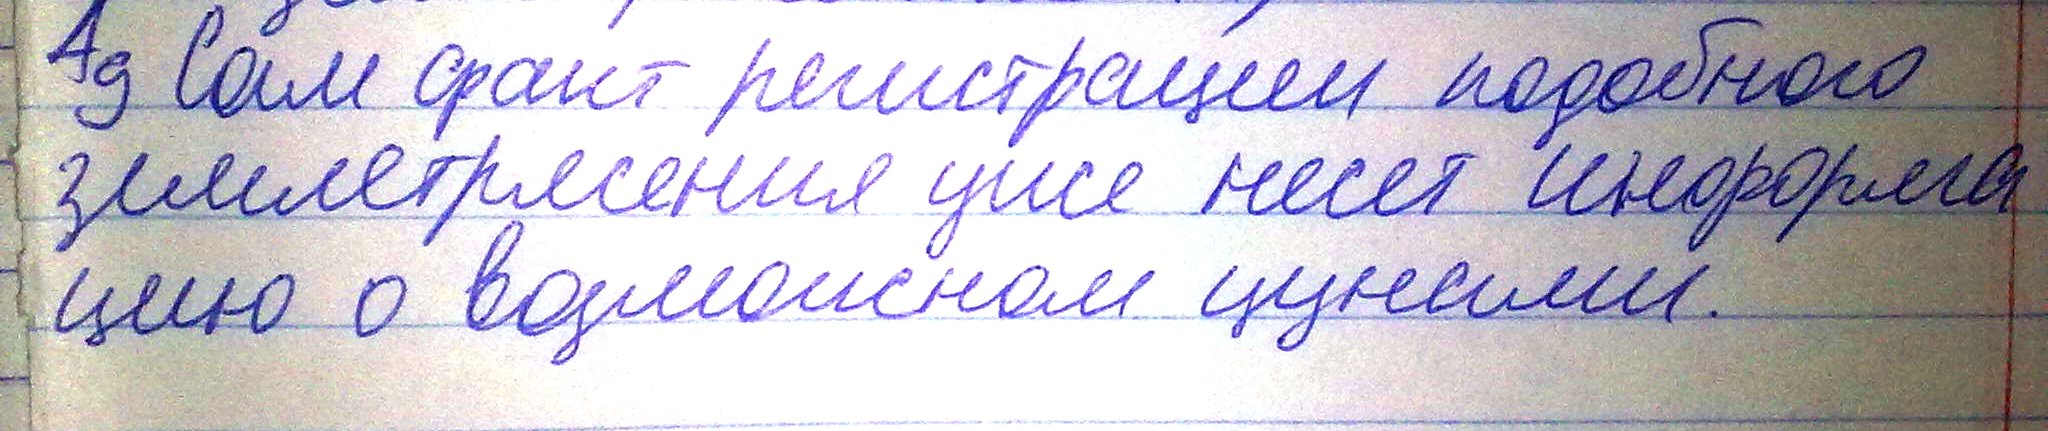 A9 Сам факт регистрации подобного
землетрясения уже несет информа
цию о возможном цунами.